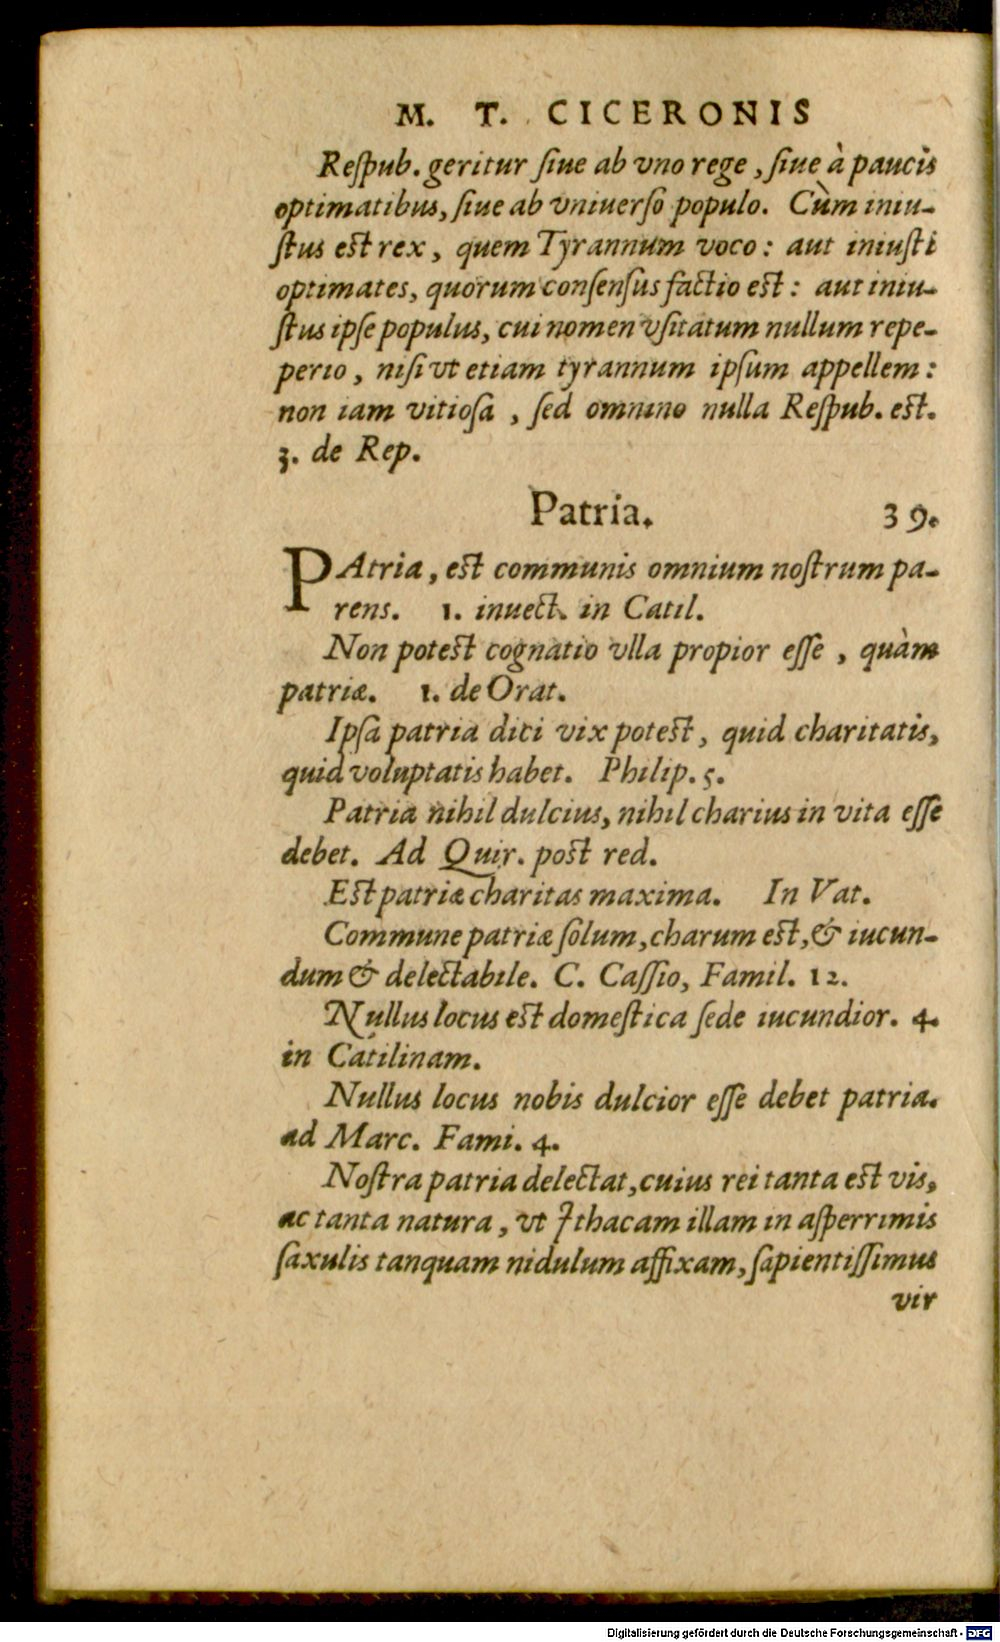 M. T. CICERONIS
Reſpub. geritur ſiue ab vno rege, ſiue à paucis
optimatibus, ſiue ab vniuerſo populo. Cùm iniu-
ſtus est rex, quem Tyrannum voco: aut iniuſti
optimates, quorum conſenſus factio est: aut iniu-
ſtus ipſe populus, cui nomen vſitatum nullum repe-
perio, niſi vt etiam tyrannum ipſum appellem:
non iam vitioſa, ſed omnino nulla Reſpub. est.
3. de Rep.
Patria. 39.
PAtria, est communis omnium noſtrum pa-
rens. 1. inuect. in Catil.
Non potest cognatio vlla propior eſſe, quàm
patriæ. 1. de Orat.
Ipſa patria dici vix potest, quid charitatis,
quid voluptatis habet. Philip. 5.
Patria nihil dulcius, nihil charius in vita eſſe
debet. Ad Quir. post red.
Est patriæ charitas maxima. In Vat.
Commune patriæ ſolum, charum est, & iucun-
dum & delectabile. C. Caſſio, Famil. 12.
Nullus locus est domeſtica ſede iucundior. 4.
in Catilinam.
Nullus locus nobis dulcior eſſe debet patria.
ad Marc. Fami. 4.
Noſtra patria delectat, cuius rei tanta est vis,
ac tanta natura, vt Ithacam illam in aſperrimis
ſaxulis tanquam nidulum affixam, ſapientiſſimus
vir
Digitalisierung gefördert durch die Deutsche Forschungsgemeinschaft - DFG